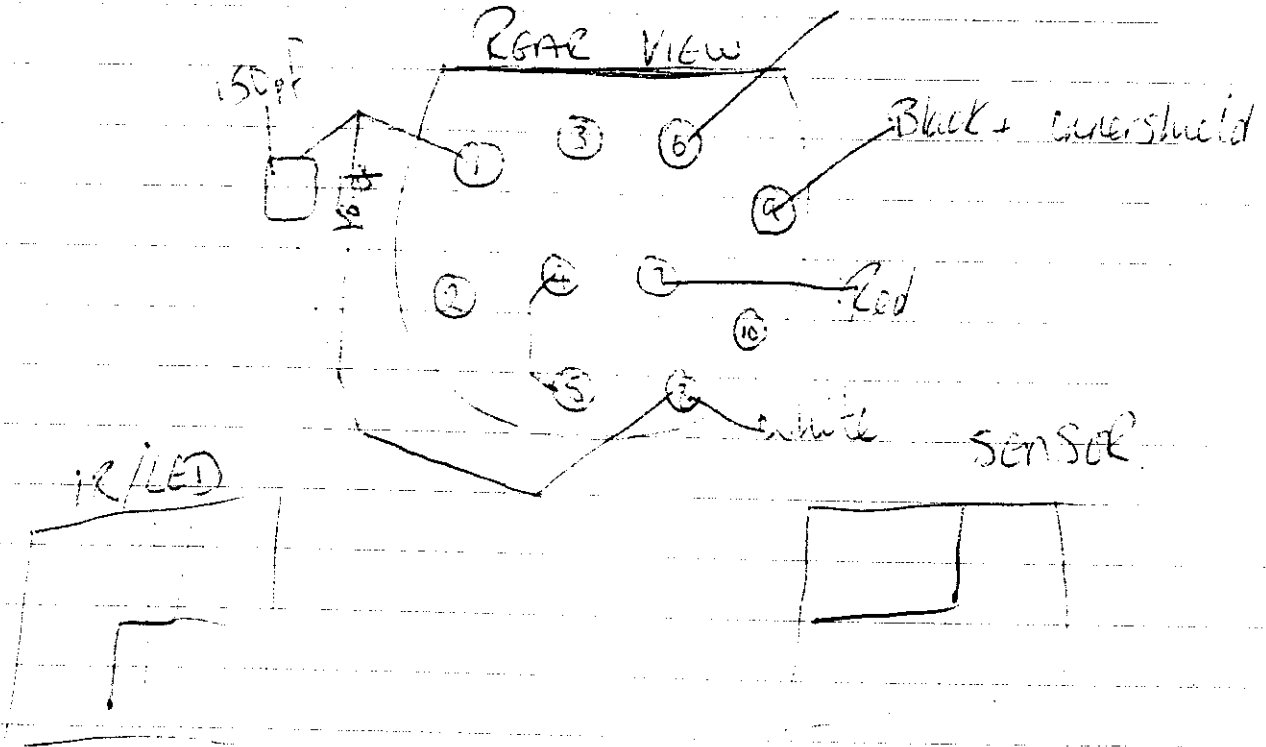 REAR VIEW
150pF
3
6
Black + innershield
1
9
2
4
7
Red
10
5
8
white
SENSOR
iR/LED